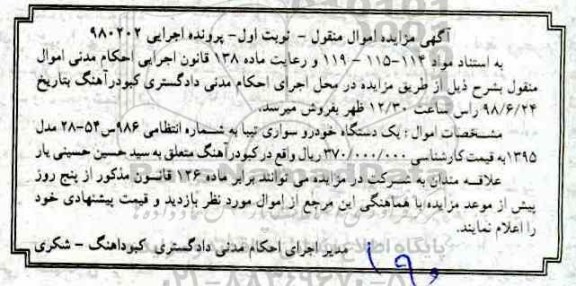 آگهی مزایده اموال منقول - نوبت اول- پرونده اجرایی ۹۸۰۲۰۲
به استناد مواد ۱۱۴-۱۱۵ - ۱۱۹ و رعایت ماده ۱۳۸ قانون اجرایی احکام مدنی اموال
منقول بشرح ذیل از طریق مزایده در محل اجرای احکام مدنی دادگستری کبودرآهنگ بتاریخ
۹۸/۶/۲۴ راس ساعت ۱۲/۳۰ ظهر بفروش میرسد.
مشخصات اموال : یک دستگاه خودرو سواری تیبا به شماره انتظامی ۹۸۶س۵۴-۲۸ مدل
۱۳۹۵ به قیمت کارشناسی ۳۷۰/۰۰۰/۰۰۰ ریال واقع در کبودرآهنگ متعلق به سید حسین حسینی یار
علاقه مندان به شرکت در مزایده می توانند برابر ماده ۱۲۶ قانون مذکور از پنج روز
پیش از موعد مزایده با هماهنگی این مرجع از اموال مورد نظر بازدید و قیمت پیشنهادی خود
را اعلام نمایند.
مدیر اجرای احکام مدنی دادگستری کبوداهنگ - شکری